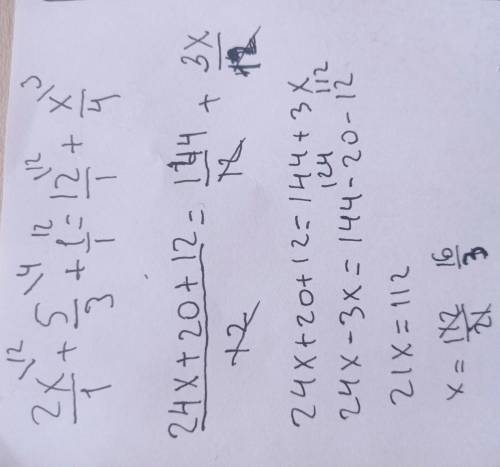 2x/1 \12 + 5/3 \4 + 1/1 \12 = 12/1 \12 + x/4 \3
24x + 20 + 12/12 = 144/12 + 3x/12
24x + 20 + 12 = 144 + 3x
124 112
24x - 3x = 144 - 20 - 12
21x = 112
x = 112/21 16/3